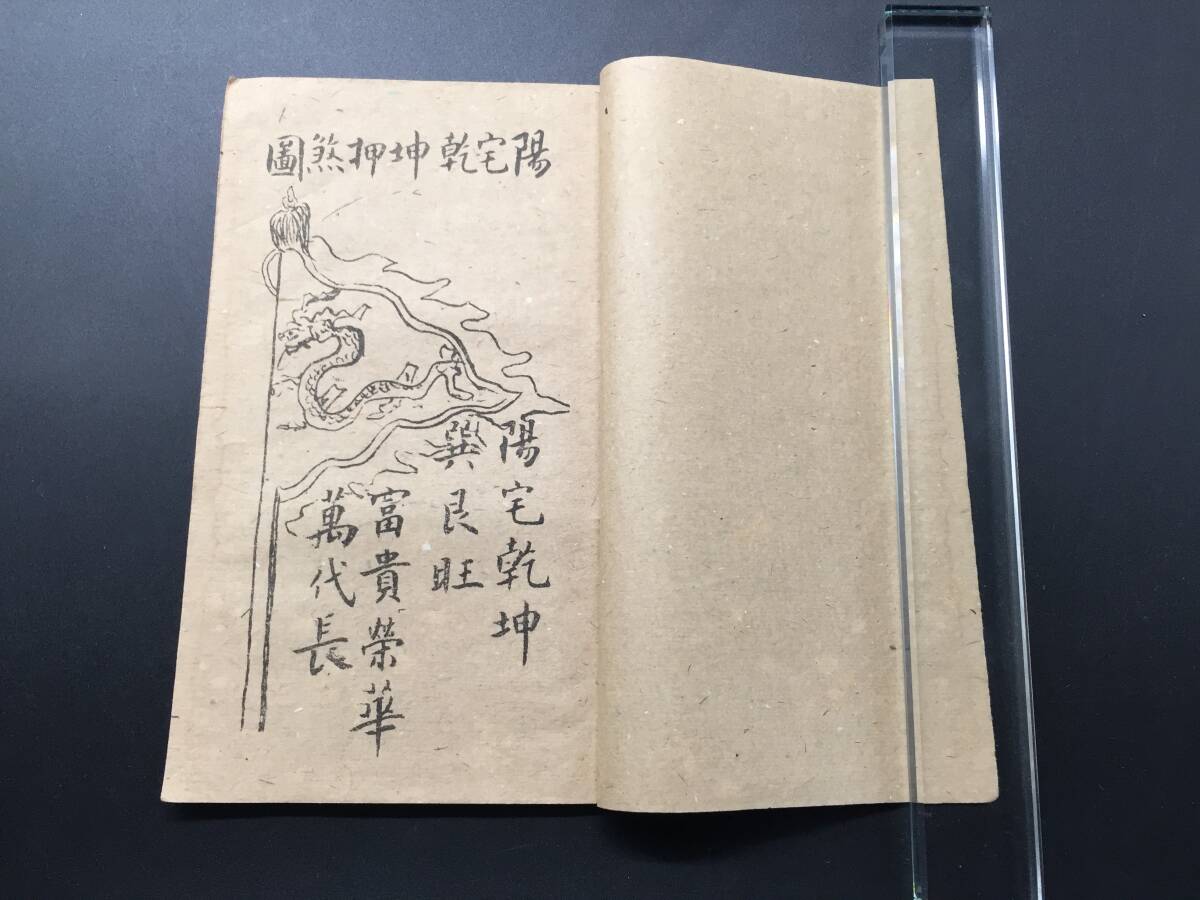 陽宅乾坤押煞圖
陽宅乾坤
巽艮旺
富貴榮華
萬代長